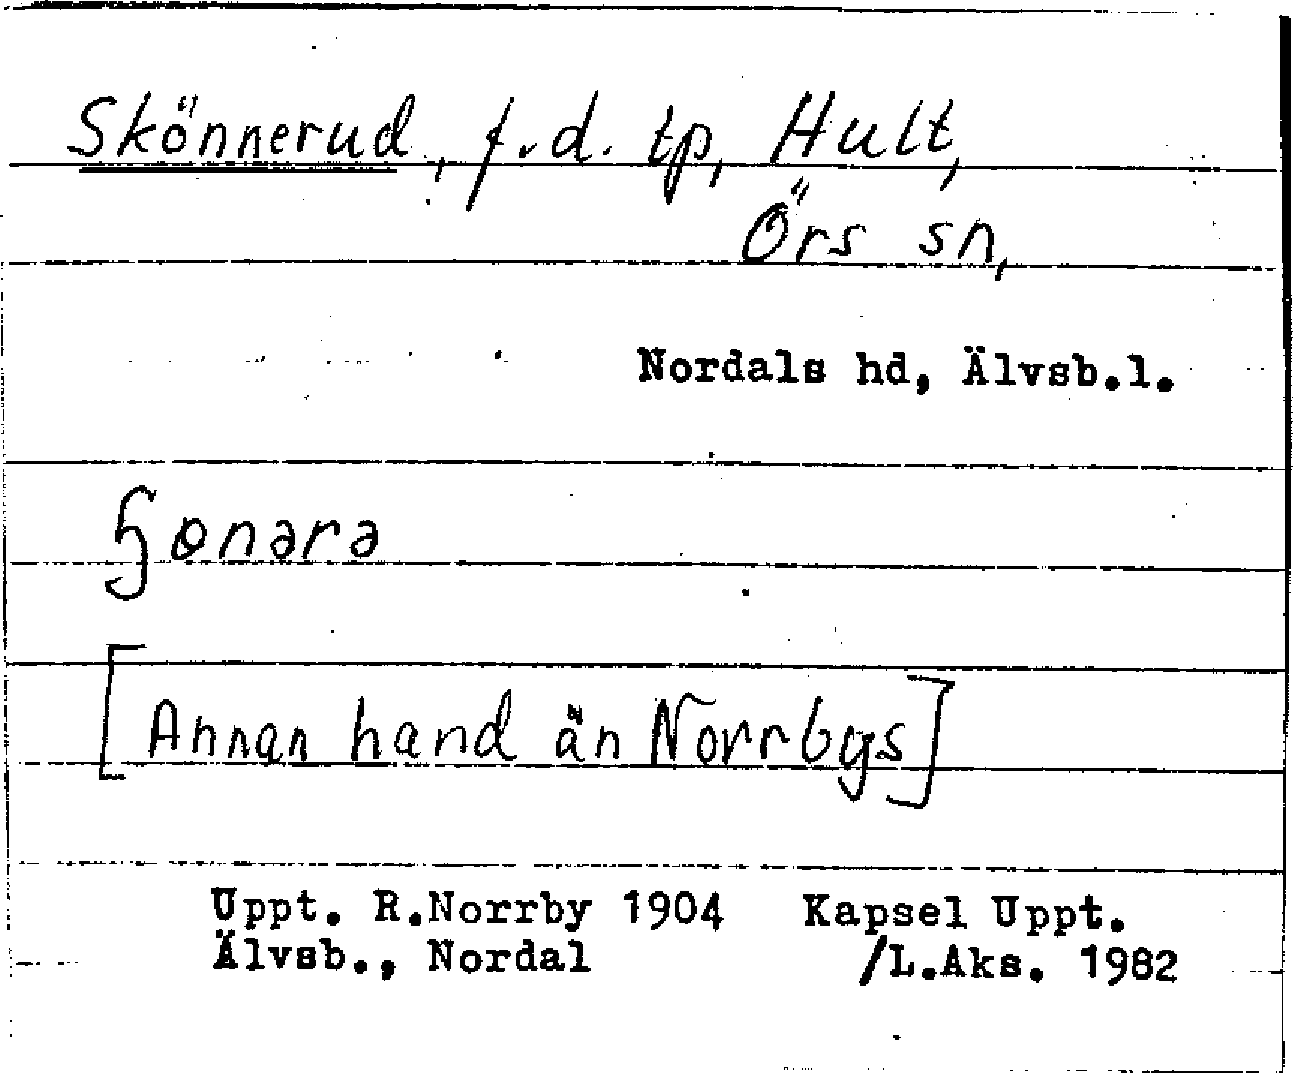 Skönnerud, f.d. tp, Hult,
Örs sn,
Nordals hd, Älvsb.l.
ɧɵnərə
[Annan hand än Norrbys]
Uppt. R.Norrby 1904 Kapsel Uppt.
Älvsb., Nordal /L.Aks. 1982